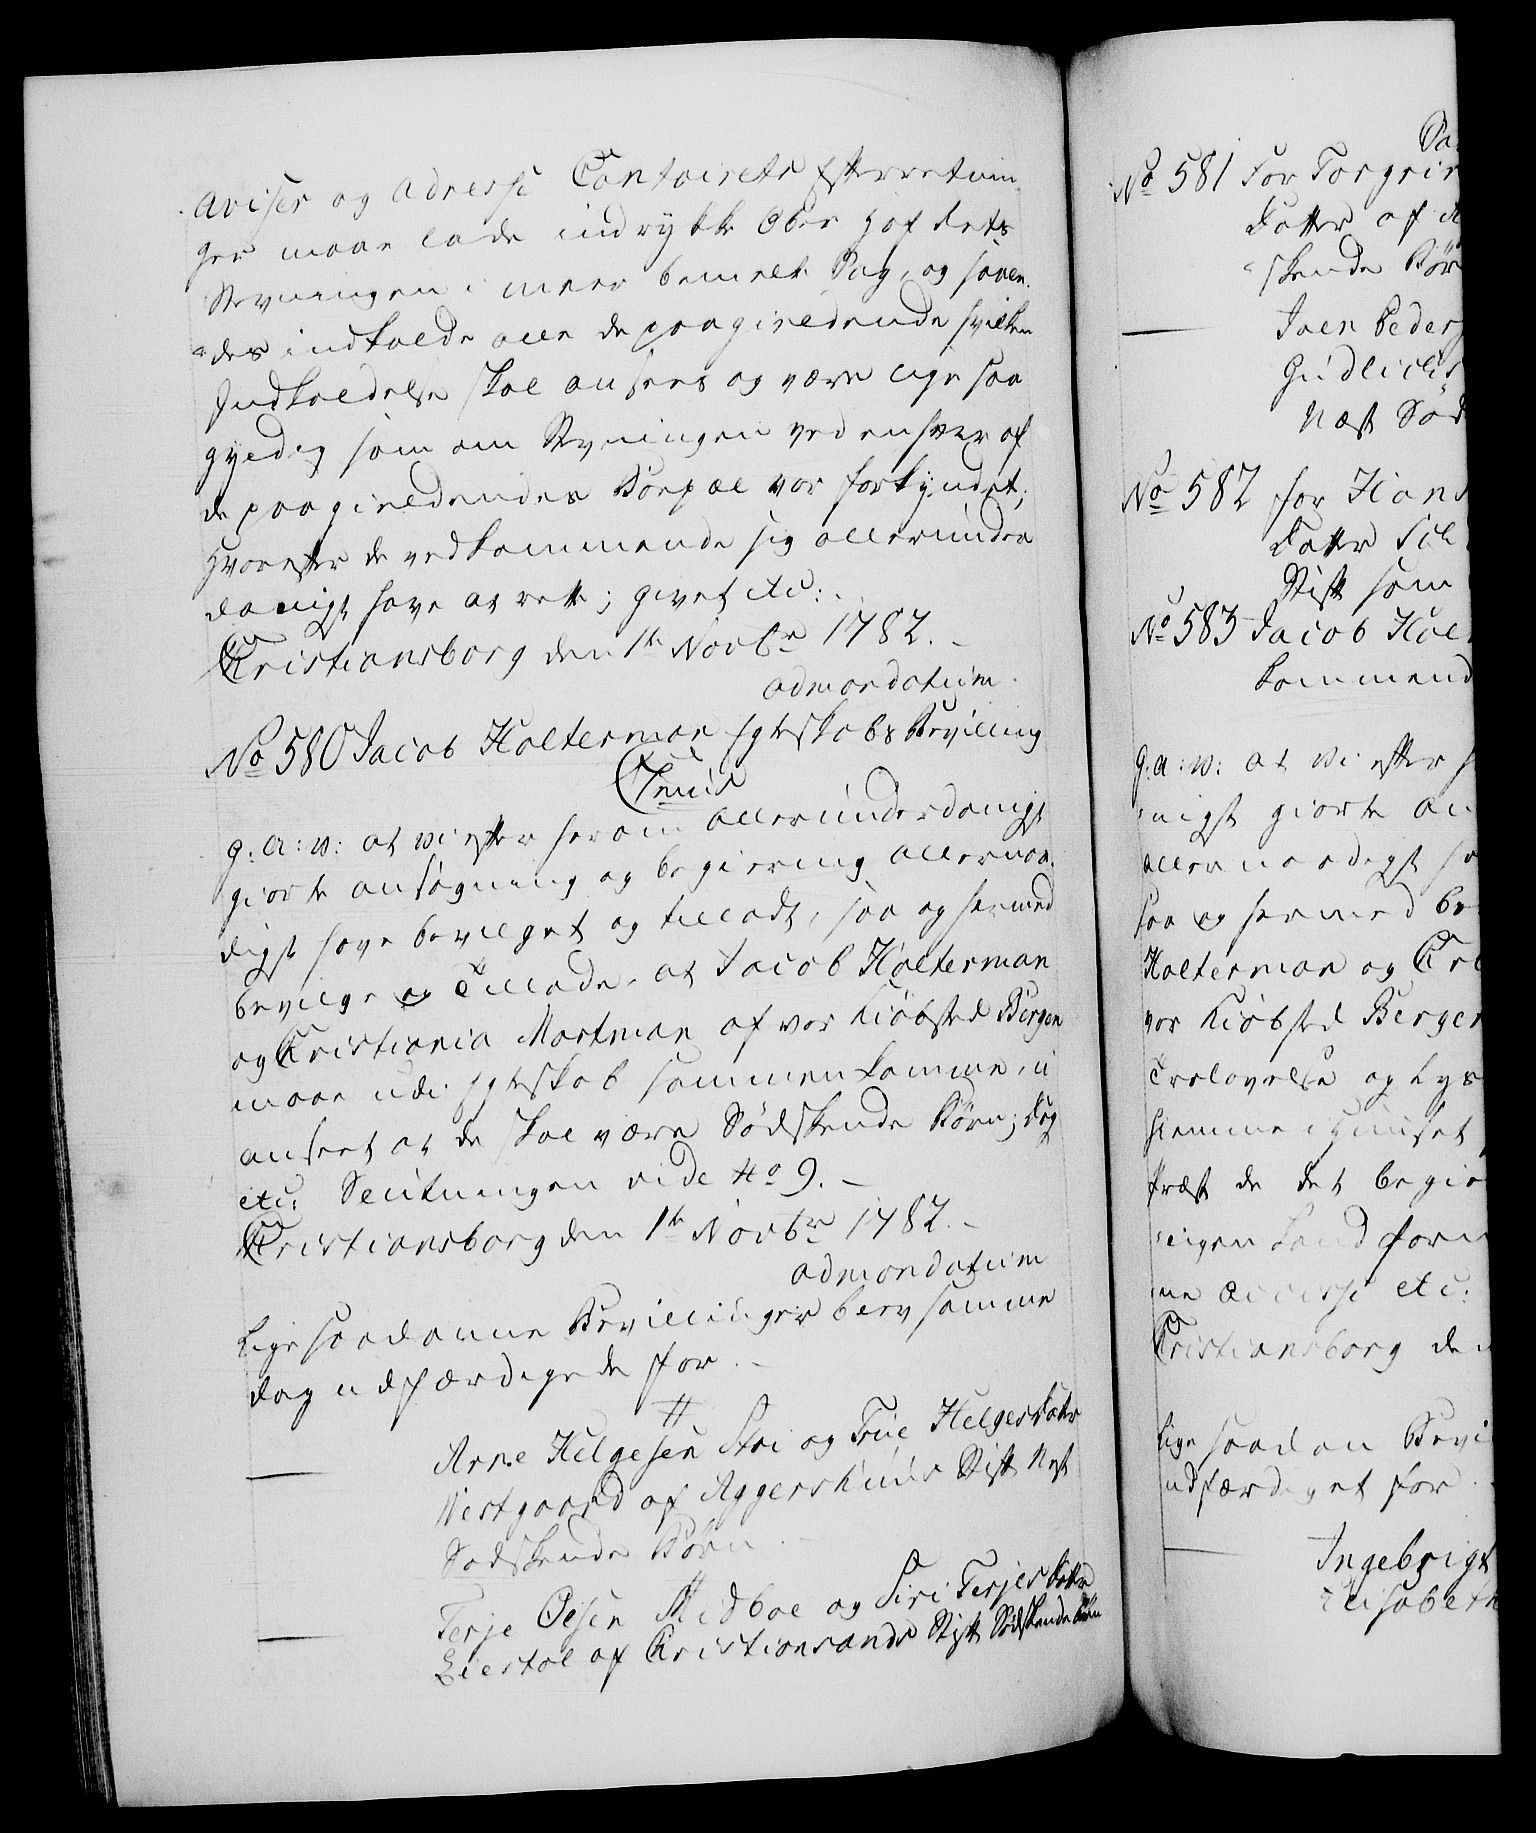 Aviser og Adresse Contoirets Efterretnin
ger maae lade indrykke Ober Hof Rets
Stevningen i meer bemelte Sag, og saale
des indkalde alle de paagieldende hvilken
Indkaldelse skal ansees og være lige saa
gyldig som om Stevningen ved enhver af
de paagieldendes Boepæl var forkyndet;
Hvorefter de vedkommende sig allerunder
danigst have at rette; givet etc:
Christiansborg den 1te Novbr 1782.
ad mandatum.
No 580 Jacob Holterman Egteskabs Bevilling
g: A: w: at Wi efter herom allerunderdanigst
giorte ansøgning og begiering allernaa
digst have bevilget og tilladt, saa og hermed
bevilge og Tillade, at Jacob Holterman
og Christiania Mortman af vor Kiøbsted Bergen
maae udi Egteskab sammenkomme, u
anseet at de skal være Sødskende Børn; dog
etc: Slutningen vide No 9.
Christiansborg den 1te Novbr 1782.
ad mandatum
Lige saadanne Bevillinger blev samme
dag udfærdigede for
Arne Helgesen Stoi og Trüe Helgesdatter
Westgaard af Aggershuus Stift Nest
Sødskende Børn
Terje Olsen Midboe og Siri Terjesdatter
Liestøl af Christiansands Stift Sødskendebørn
No 581 For Torgrim
datter af
skende Bør
Joen Peders
Næst Sød
No 582 for Hans
datter
Stift som
No 583 Jacob Hol
kommend
g: a: w: at Wi efter h
nigst giorte an
allernaadigst ha
saa og hermed be
Holterman og Chr
vor Kiøbsted Bergen
Trolovelse og Lys
hiemme i Huuset
Præst de det begie
Christiansborg den
Lige saadan Bevi
udfærdiget for
Ingebrigt
Elisabeth